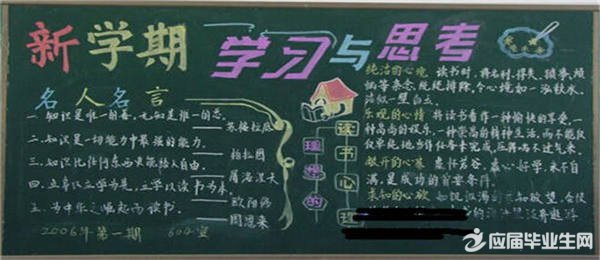 新学期
学习与思考
名人名言
一.知识是唯一的善,无知是唯一的恶。
——苏格拉底
二.知识是一切能力中最强的能力。
——柏拉图
三.知识比任何东西更能给人自由。
——屠洛涅夫
四.立身以立学为先,立学以读书为本。
——欧阳修
五.为中华之崛起而读书。
——周恩来
2006年第一期 604室
理想的
读书心理
纯洁的心境 读书时,将名利、得失、琐事、烦
恼等杂念,统统排除,令心境如一泓秋水,
洁似一盟白玉。
乐观的心情 将读书看作一种愉快的享受,一
种高尚的娱乐,一种崇高的精神生活,而不能仅
仅单纯地当作任务完成,压得喘不过气来。
敞开的心幕 虚怀若谷,虚心好学,永不自
满,是成功的首要条件。
求知的心欲 如饥似渴的求知欲望,会使
应届毕业生网